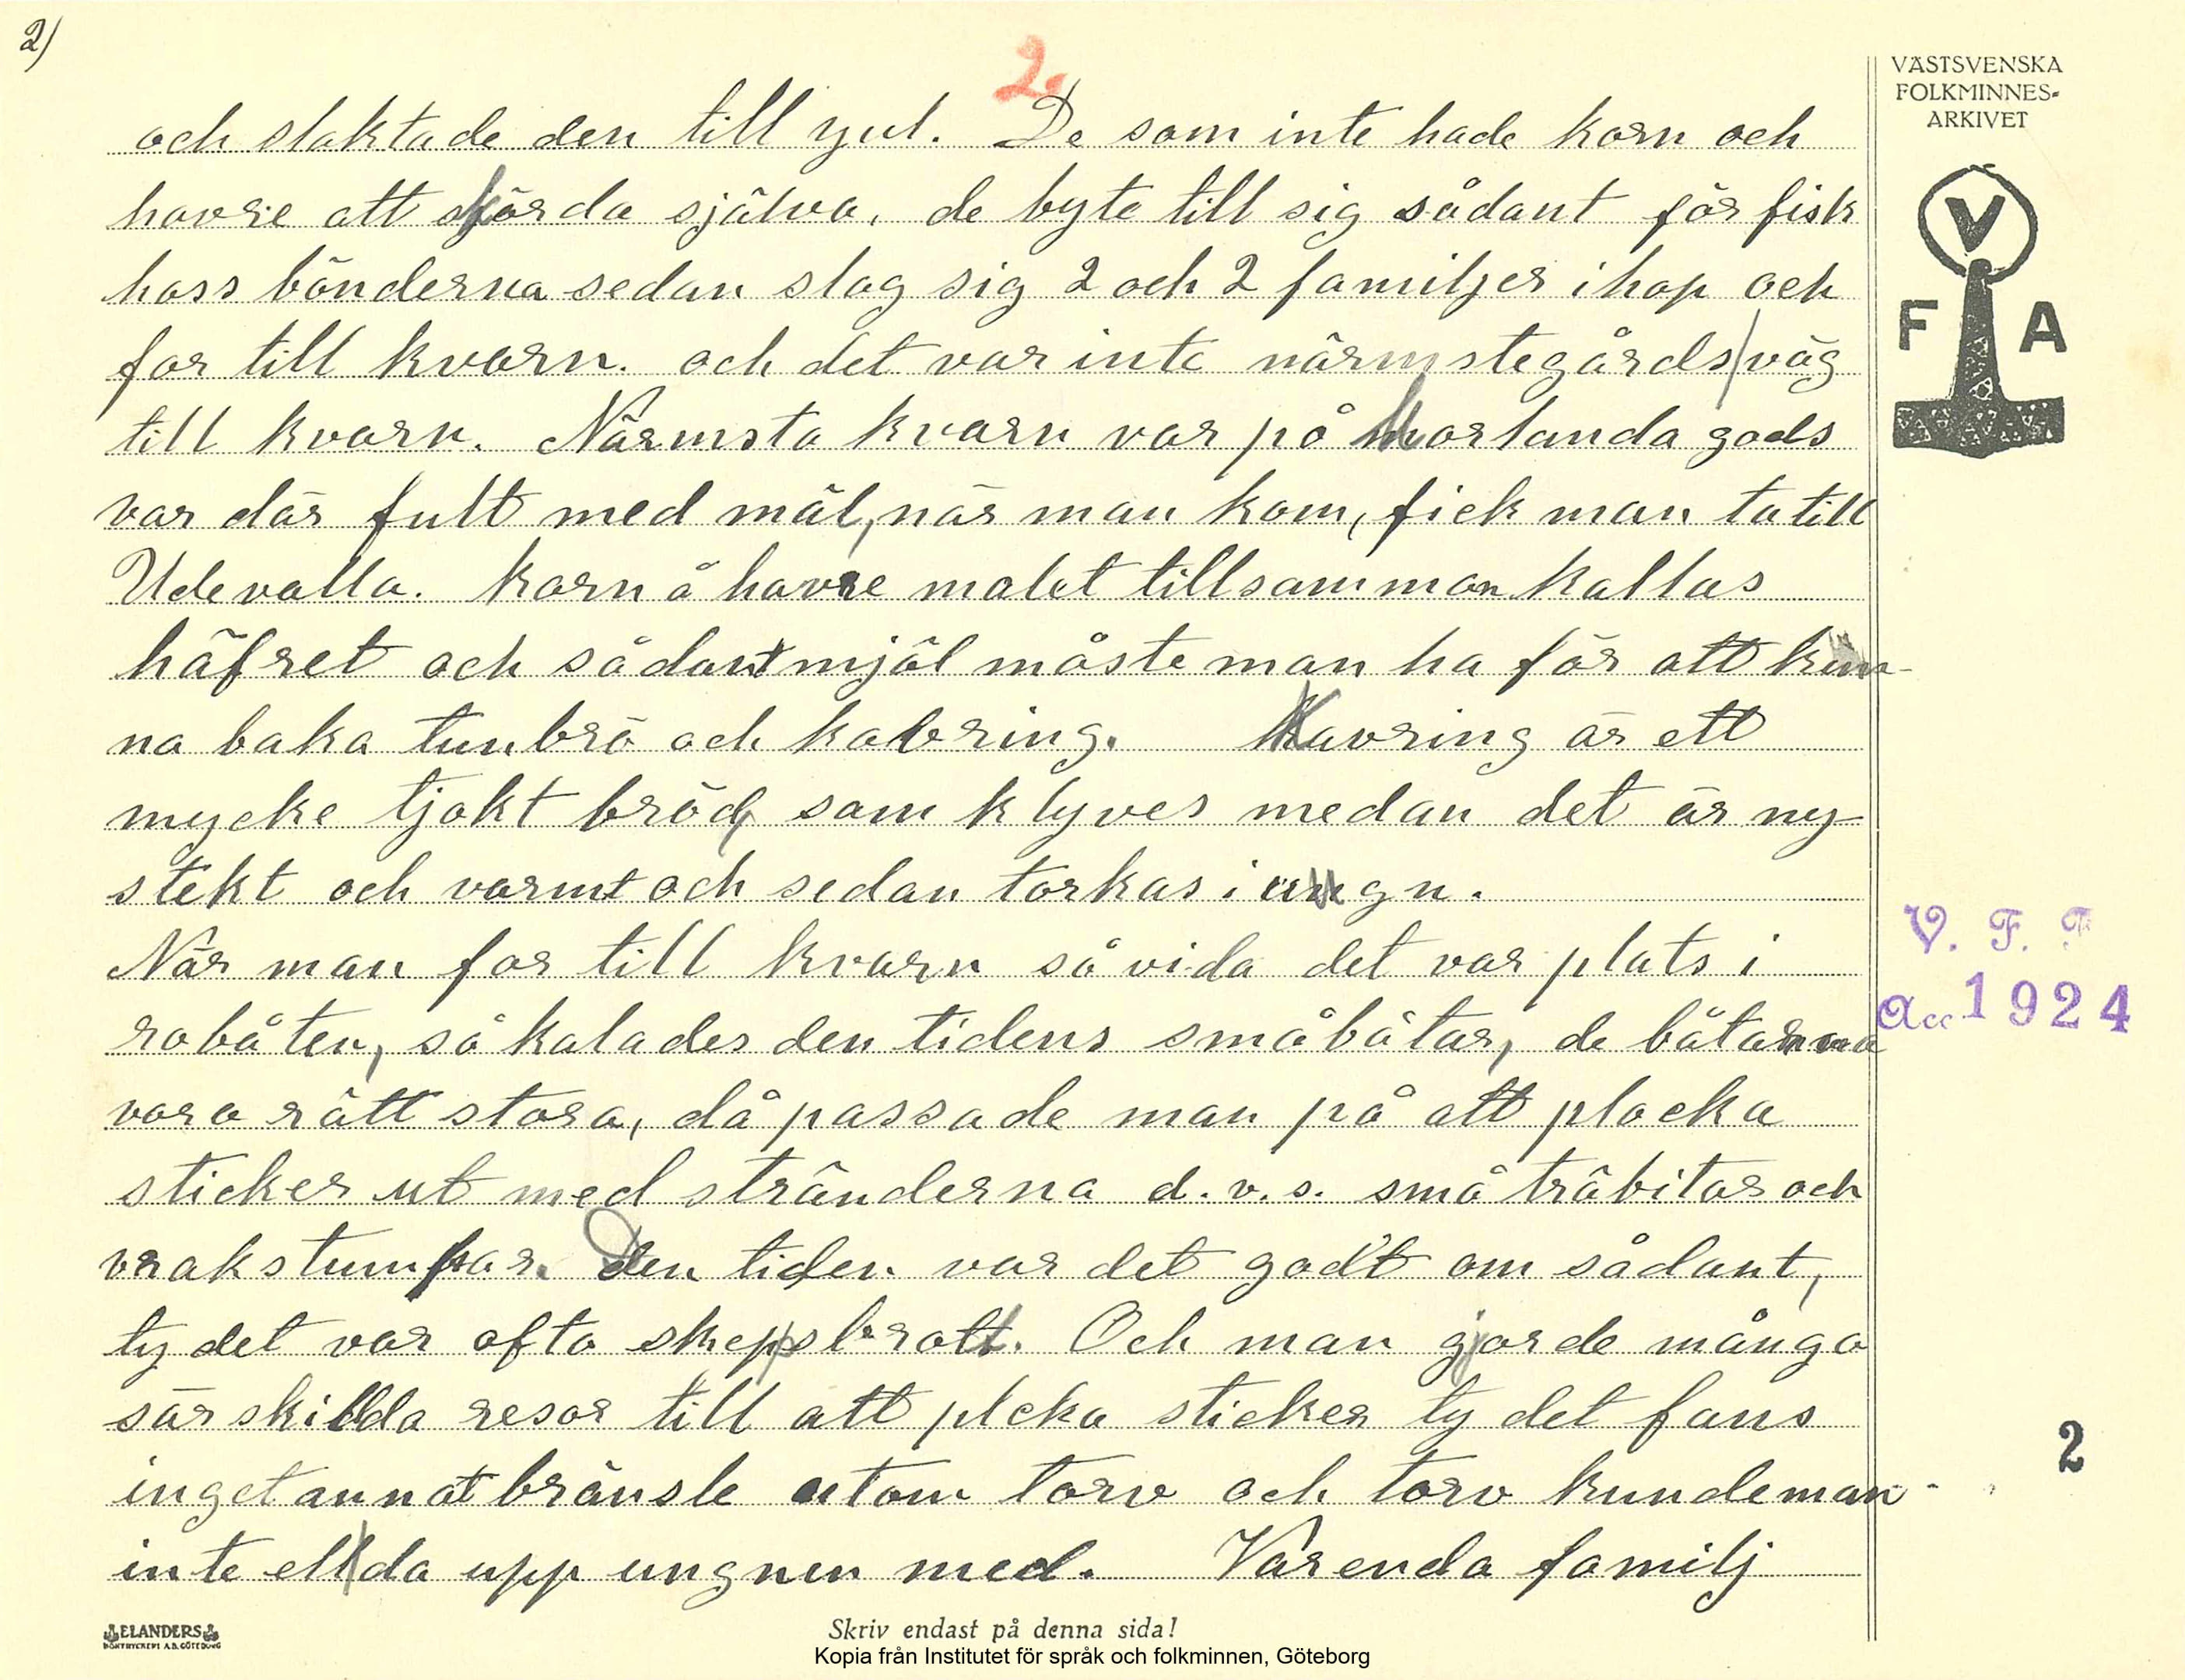 2)
2.
VÄSTSVENSKA
FOLKMINNES-
ARKIVET
och slaktade den till yul. De som inte hade korn och
havre att skörda själva, de byte till sig sådant för fisk
hoss bönderna sedan slog sig 2 och 2 familjer ihop och
for till kvarn. och det var inte närmstegårds väg
till kvarn. Närmsta kvarn var på Morlanda gods
var där fullt med mäl, när man kom, fick man ta till
Udevalla. Korn å havre malet tillsamman kallas
häfret och sådant mjöl måste man ha för att kun-
na baka tunbrö och kabring. Kavring är ett
mycke tjokt bröd som klyves medan det är ny
stekt och varmt och sedan torkas i ungn.
När man for till kvarn så vida det var plats i
robåten, så kalades den tidens småbåtar, de båtarna
vara rätt stora, då passade man på att plocka
sticker ut med stränderna d.v.s. små träbitar och
vrakstumpar. Den tiden var det godt om sådant,
ty det var ofta skeppsbrott. Och man gjorde många
särskillda resor till att plcka sticker ty det fans
inget annat bränsle utom torv och torv kunde man
inte ellda upp ungnen med. Varenda familj
V
F A
V. F. F
Acc 1924
2
ELANDERS
BOKTRYCKERI A.B. GÖTEBORG
Skriv endast på denna sida!
Kopia från Institutet för språk och folkminnen, Göteborg